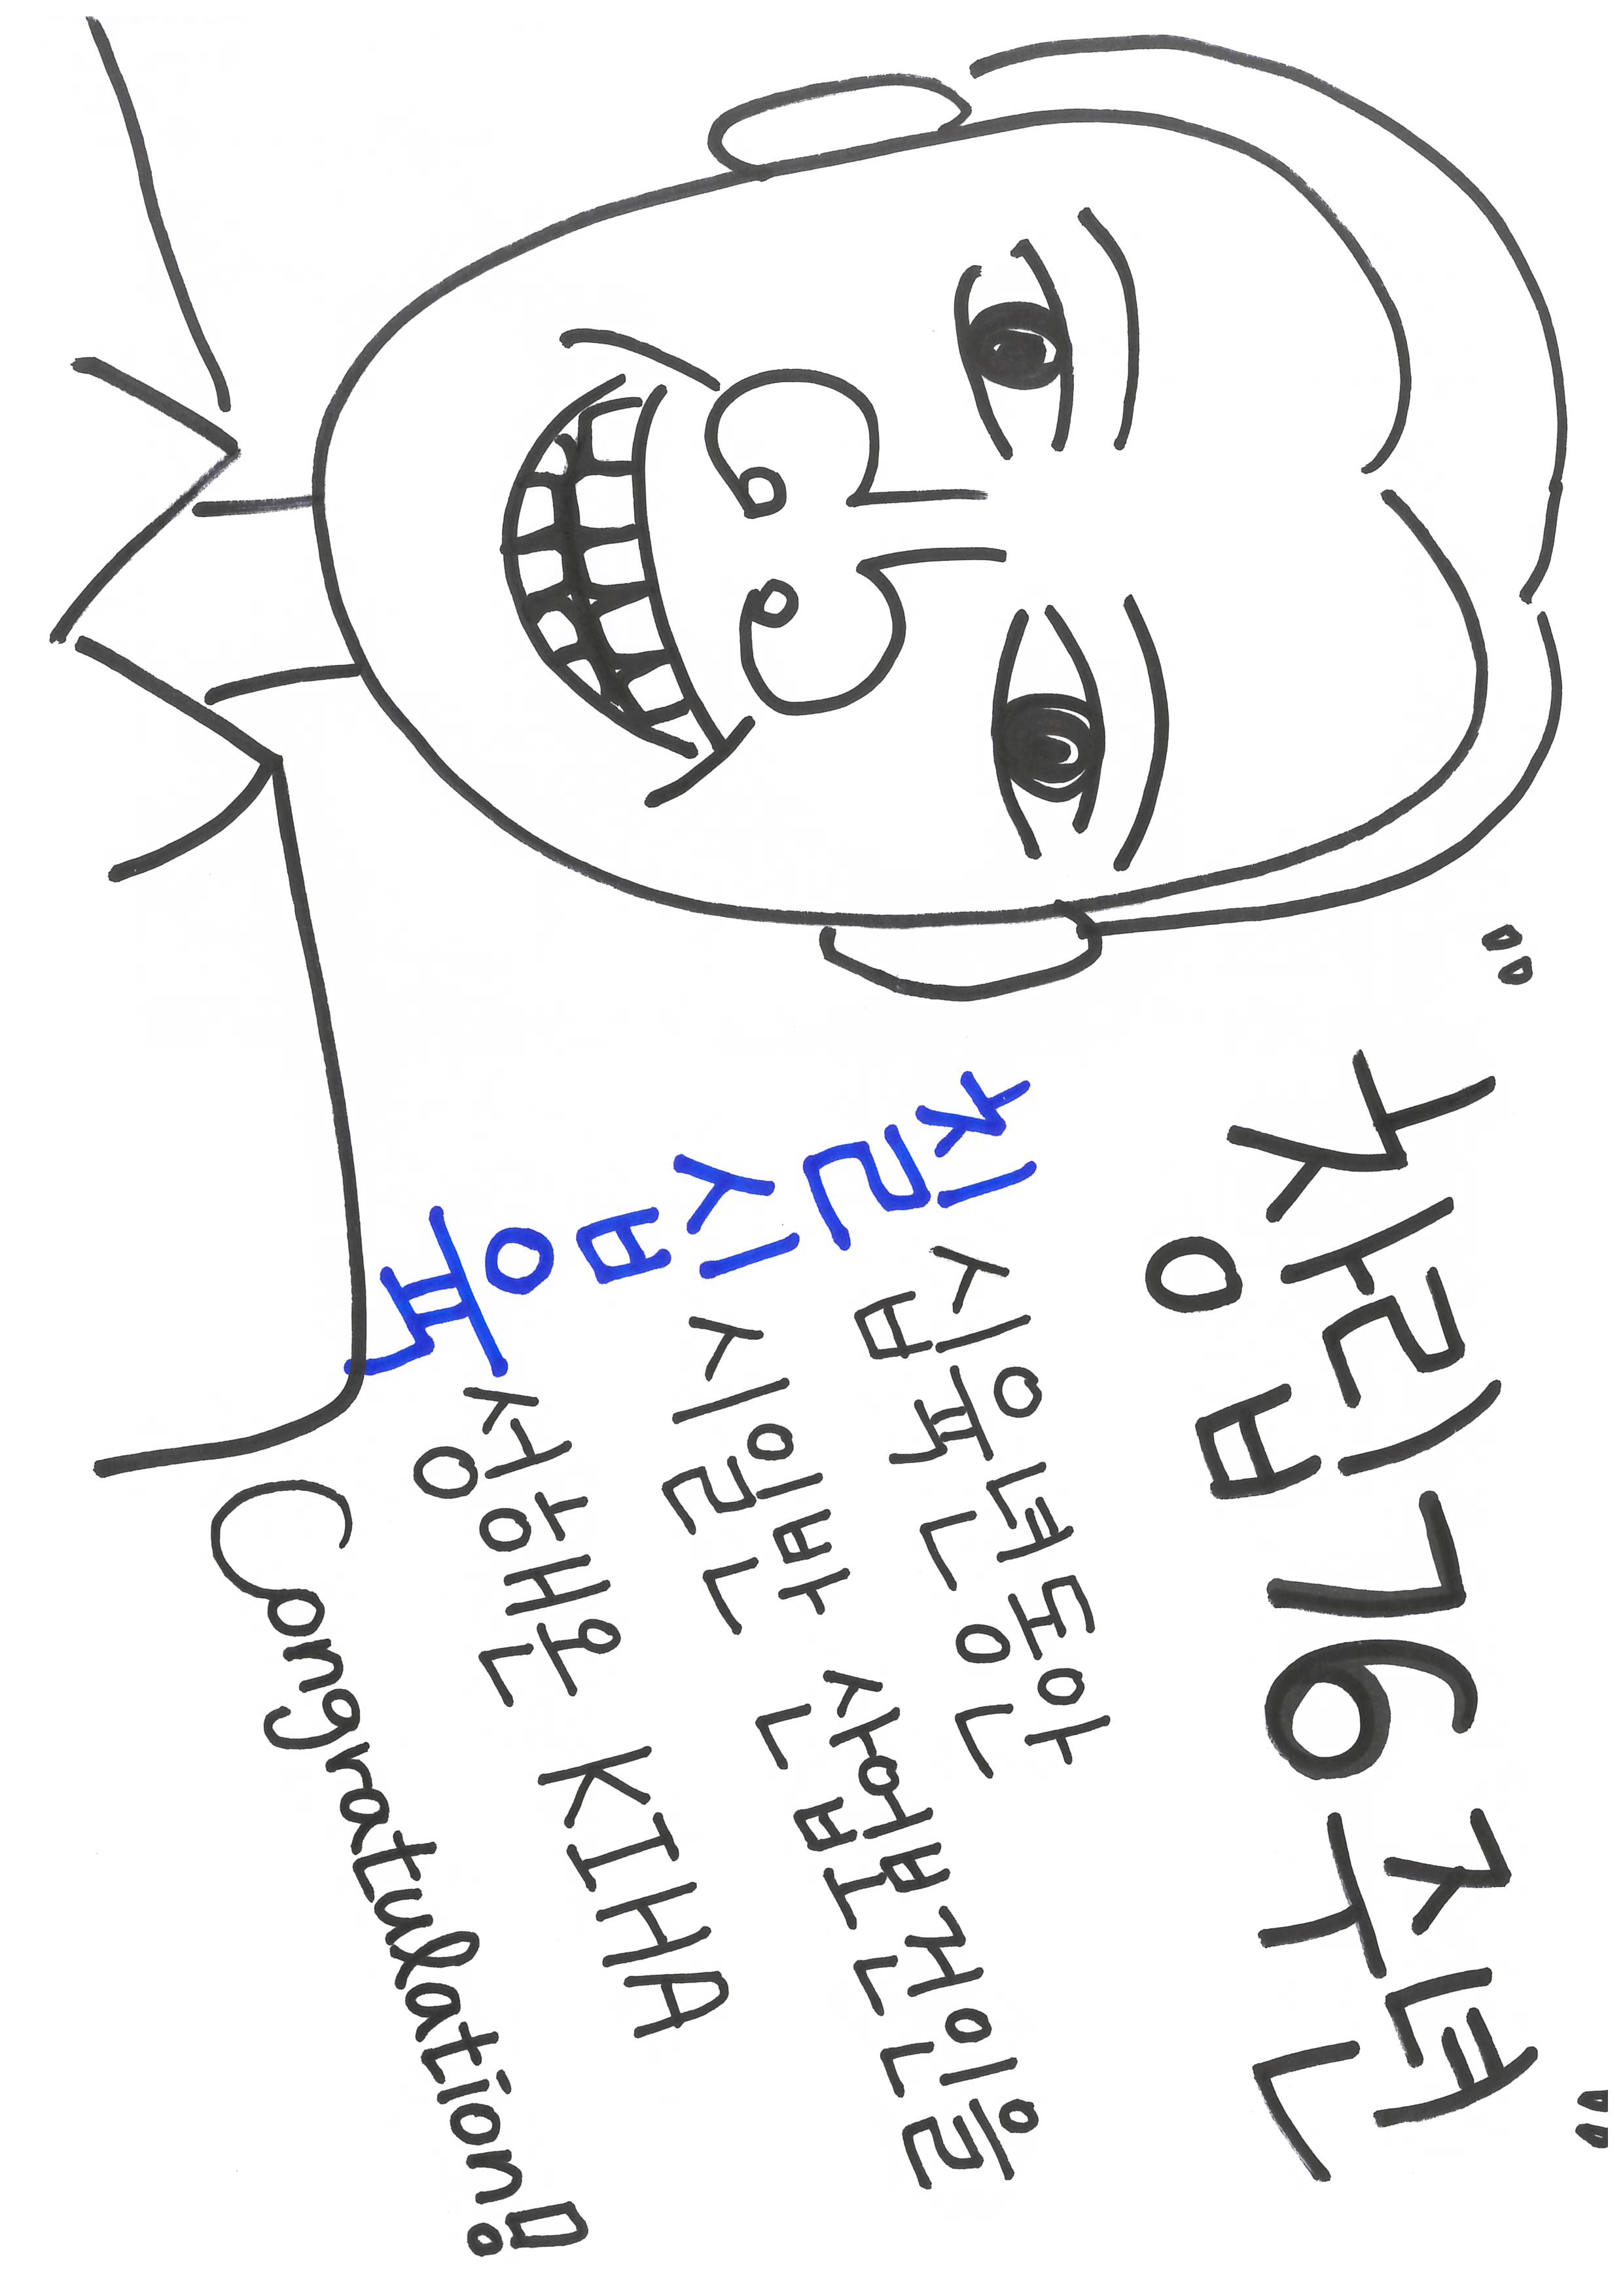 "창립76주년"
칠십육년동안
십일반 산업보건인을
육성해온 KIHA
Congratulation!